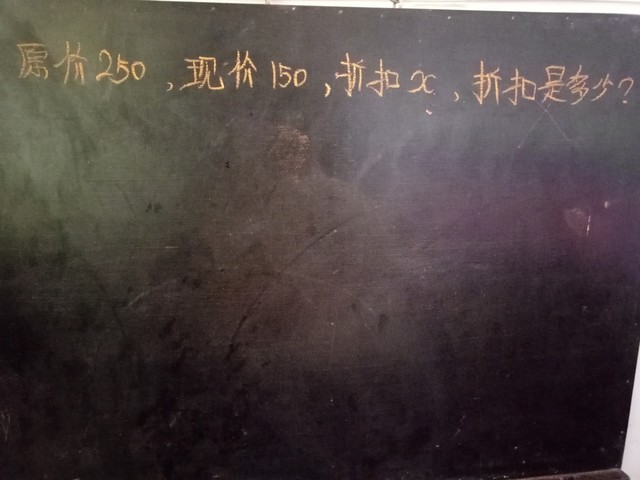 原价250,现价150,折扣x,折扣是多少?